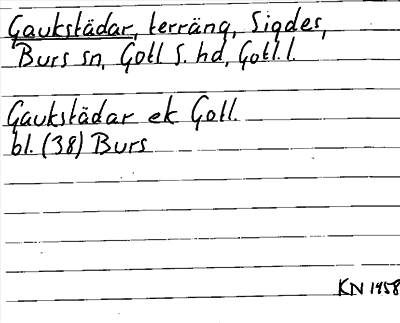 Gaukstädar, terräng, Sigdes,
Burs sn, Gotl S. hd, Gotl. l.
Gaukstädar ek Gotl.
bl. (38) Burs
KN 1958